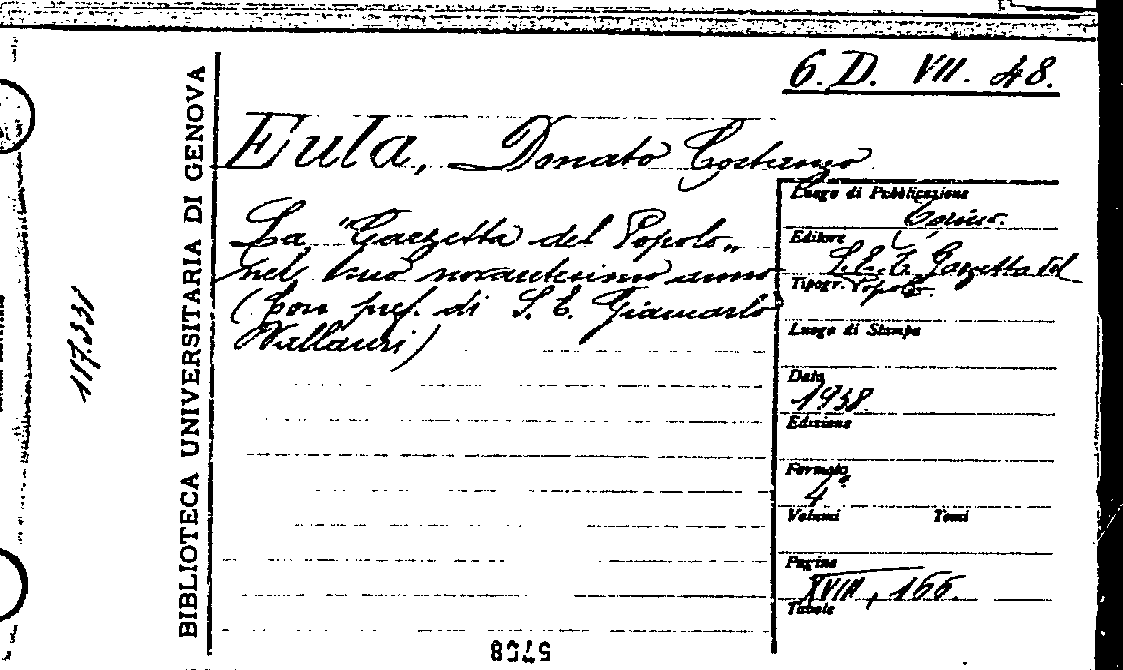 6. D. VII. 48.
BIBLIOTECA UNIVERSITARIA DI GENOVA
117.331
Eula, Donato Costanzo
La "Gazzetta del Popolo„
nel suo novantesimo anno
(Con pref. di S. E. Giancarlo
Vallauri)
Luogo di Pubblicazione
Torino.
Editore
S.E.T. Gazzetta del
Popolo.
Tipogr.
Luogo di Stampa
Data
1938.
Edizione
Formato
4°
Volumi Tomi
Pagine
XVIII, 166.
Tavole